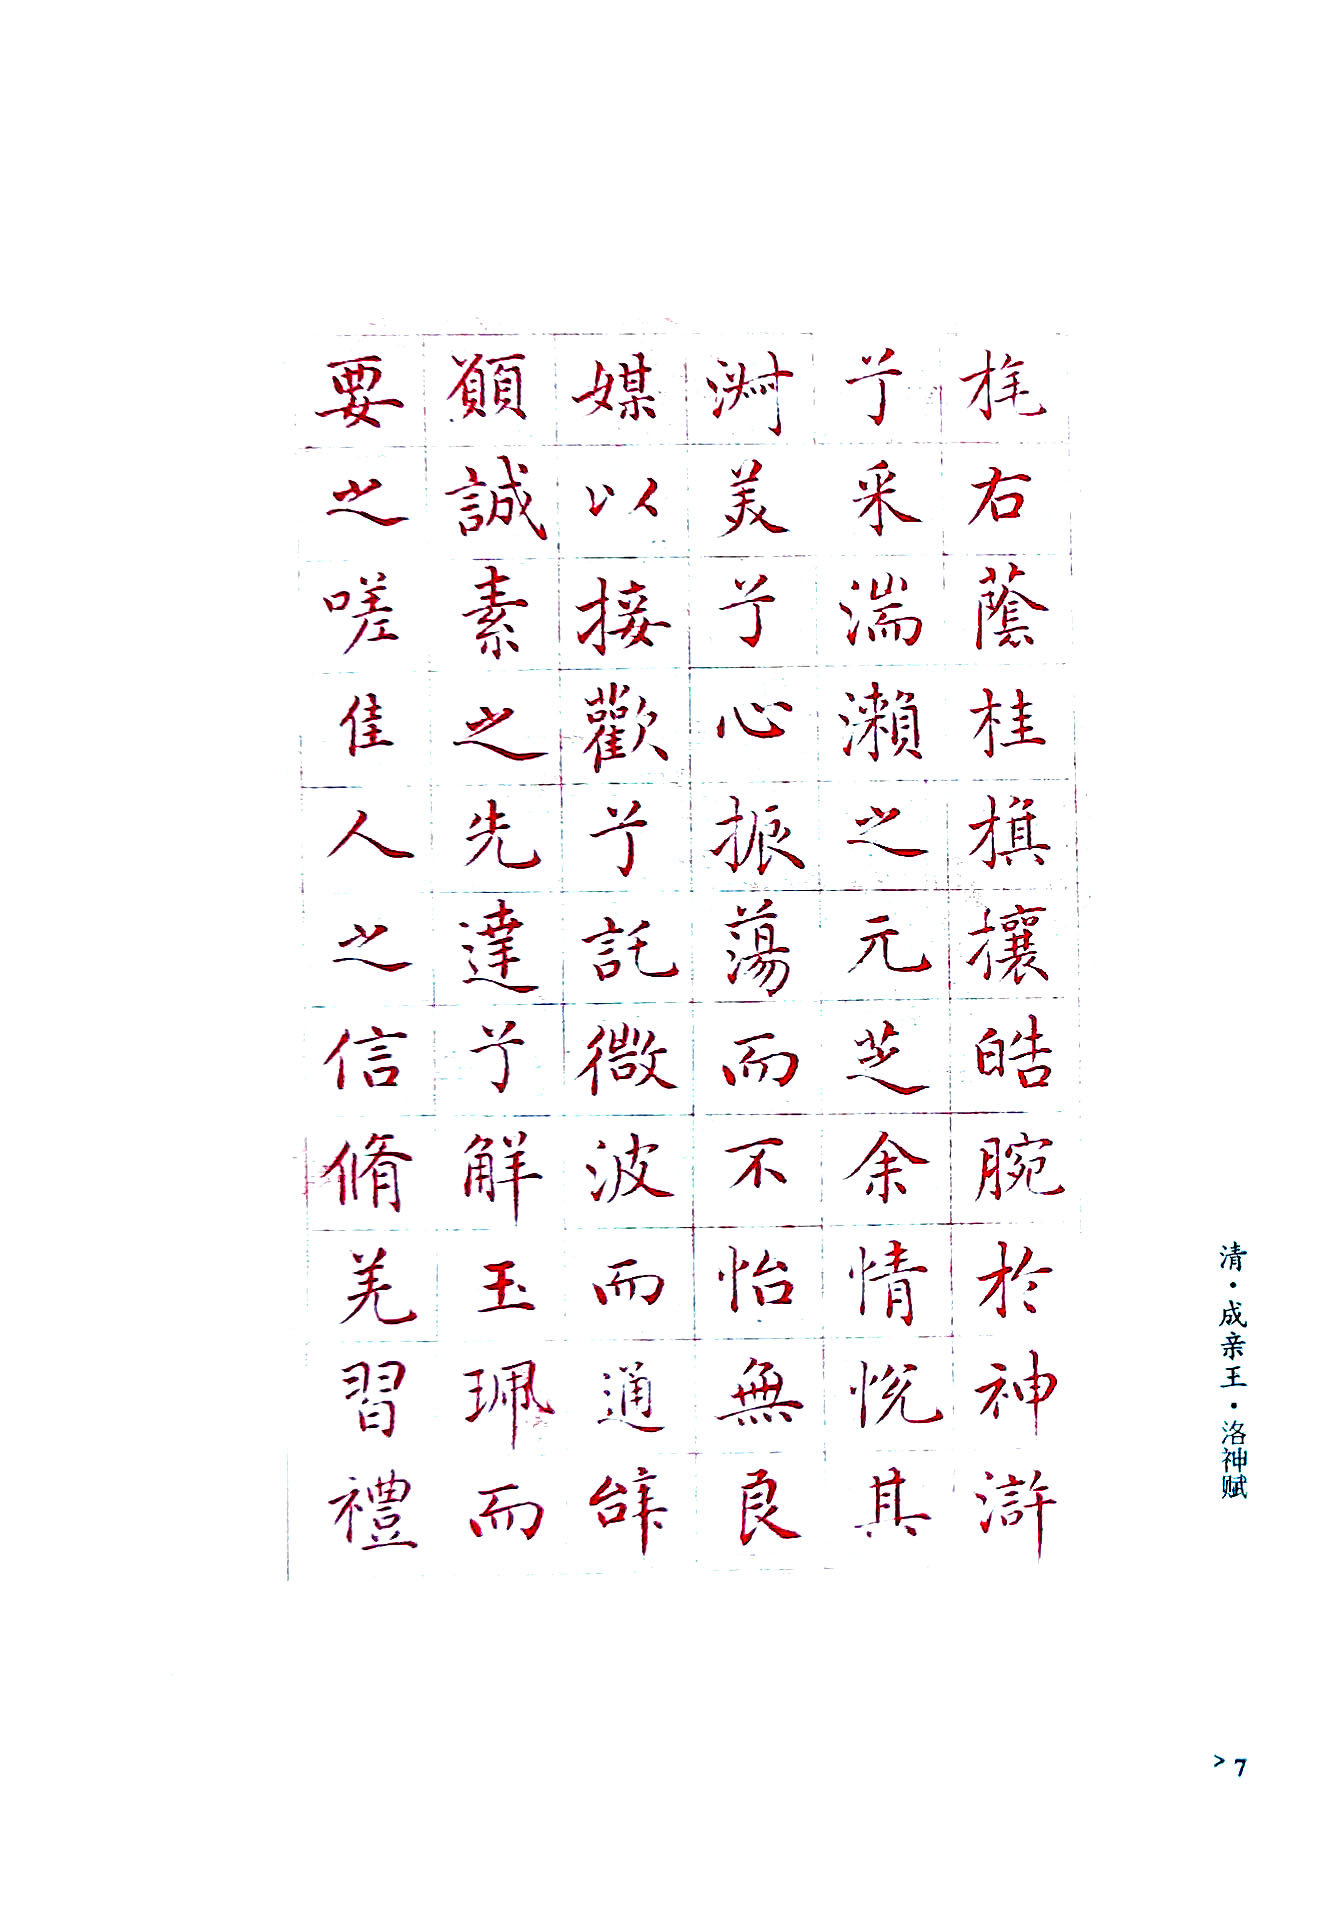 旄右蔭桂旗攘皓腕於神滸
兮采湍瀨之元芝余情悅其
淑美兮心振蕩而不怡無良
媒以接歡兮託微波而通辭
願誠素之先達兮解玉珮而
要之嗟佳人之信脩羌習禮
清·成亲王·洛神赋
> 7